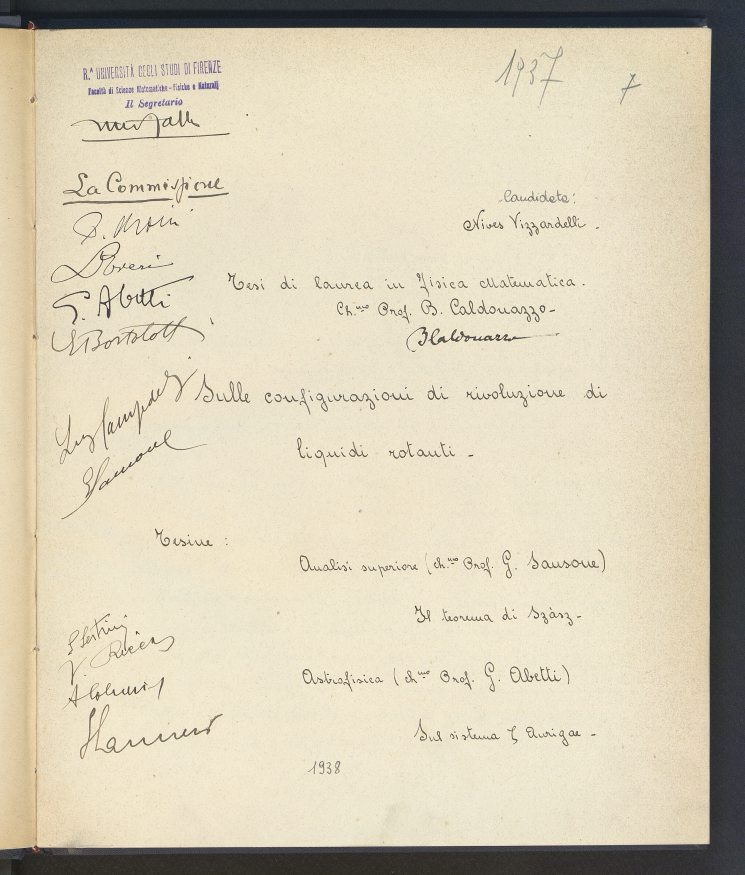 R.ª UNIVERSITÀ DEGLI STUDI DI FIRENZE
Facoltà di Scienze Matematiche - Fisiche e Naturali
Il Segretario
1937
7
La Commissione
Candidata:
Nives Vizzardelli.
G. Abetti
E Bortolotti
Tesi di laurea in Fisica Matematica.
Ch.mo Prof. B. Caldonazzo-
BCaldonazzo
Sulle configurazioni di rivoluzione di
liquidi rotanti -
GSansone
Tesine:
Analisi superiore (ch.mo Prof. G. Sansone)
Il teorema di Szàsz-
Astrofisica (ch.mo Prof. G. Abetti)
Sul sistema ζ Aurigae -
1938